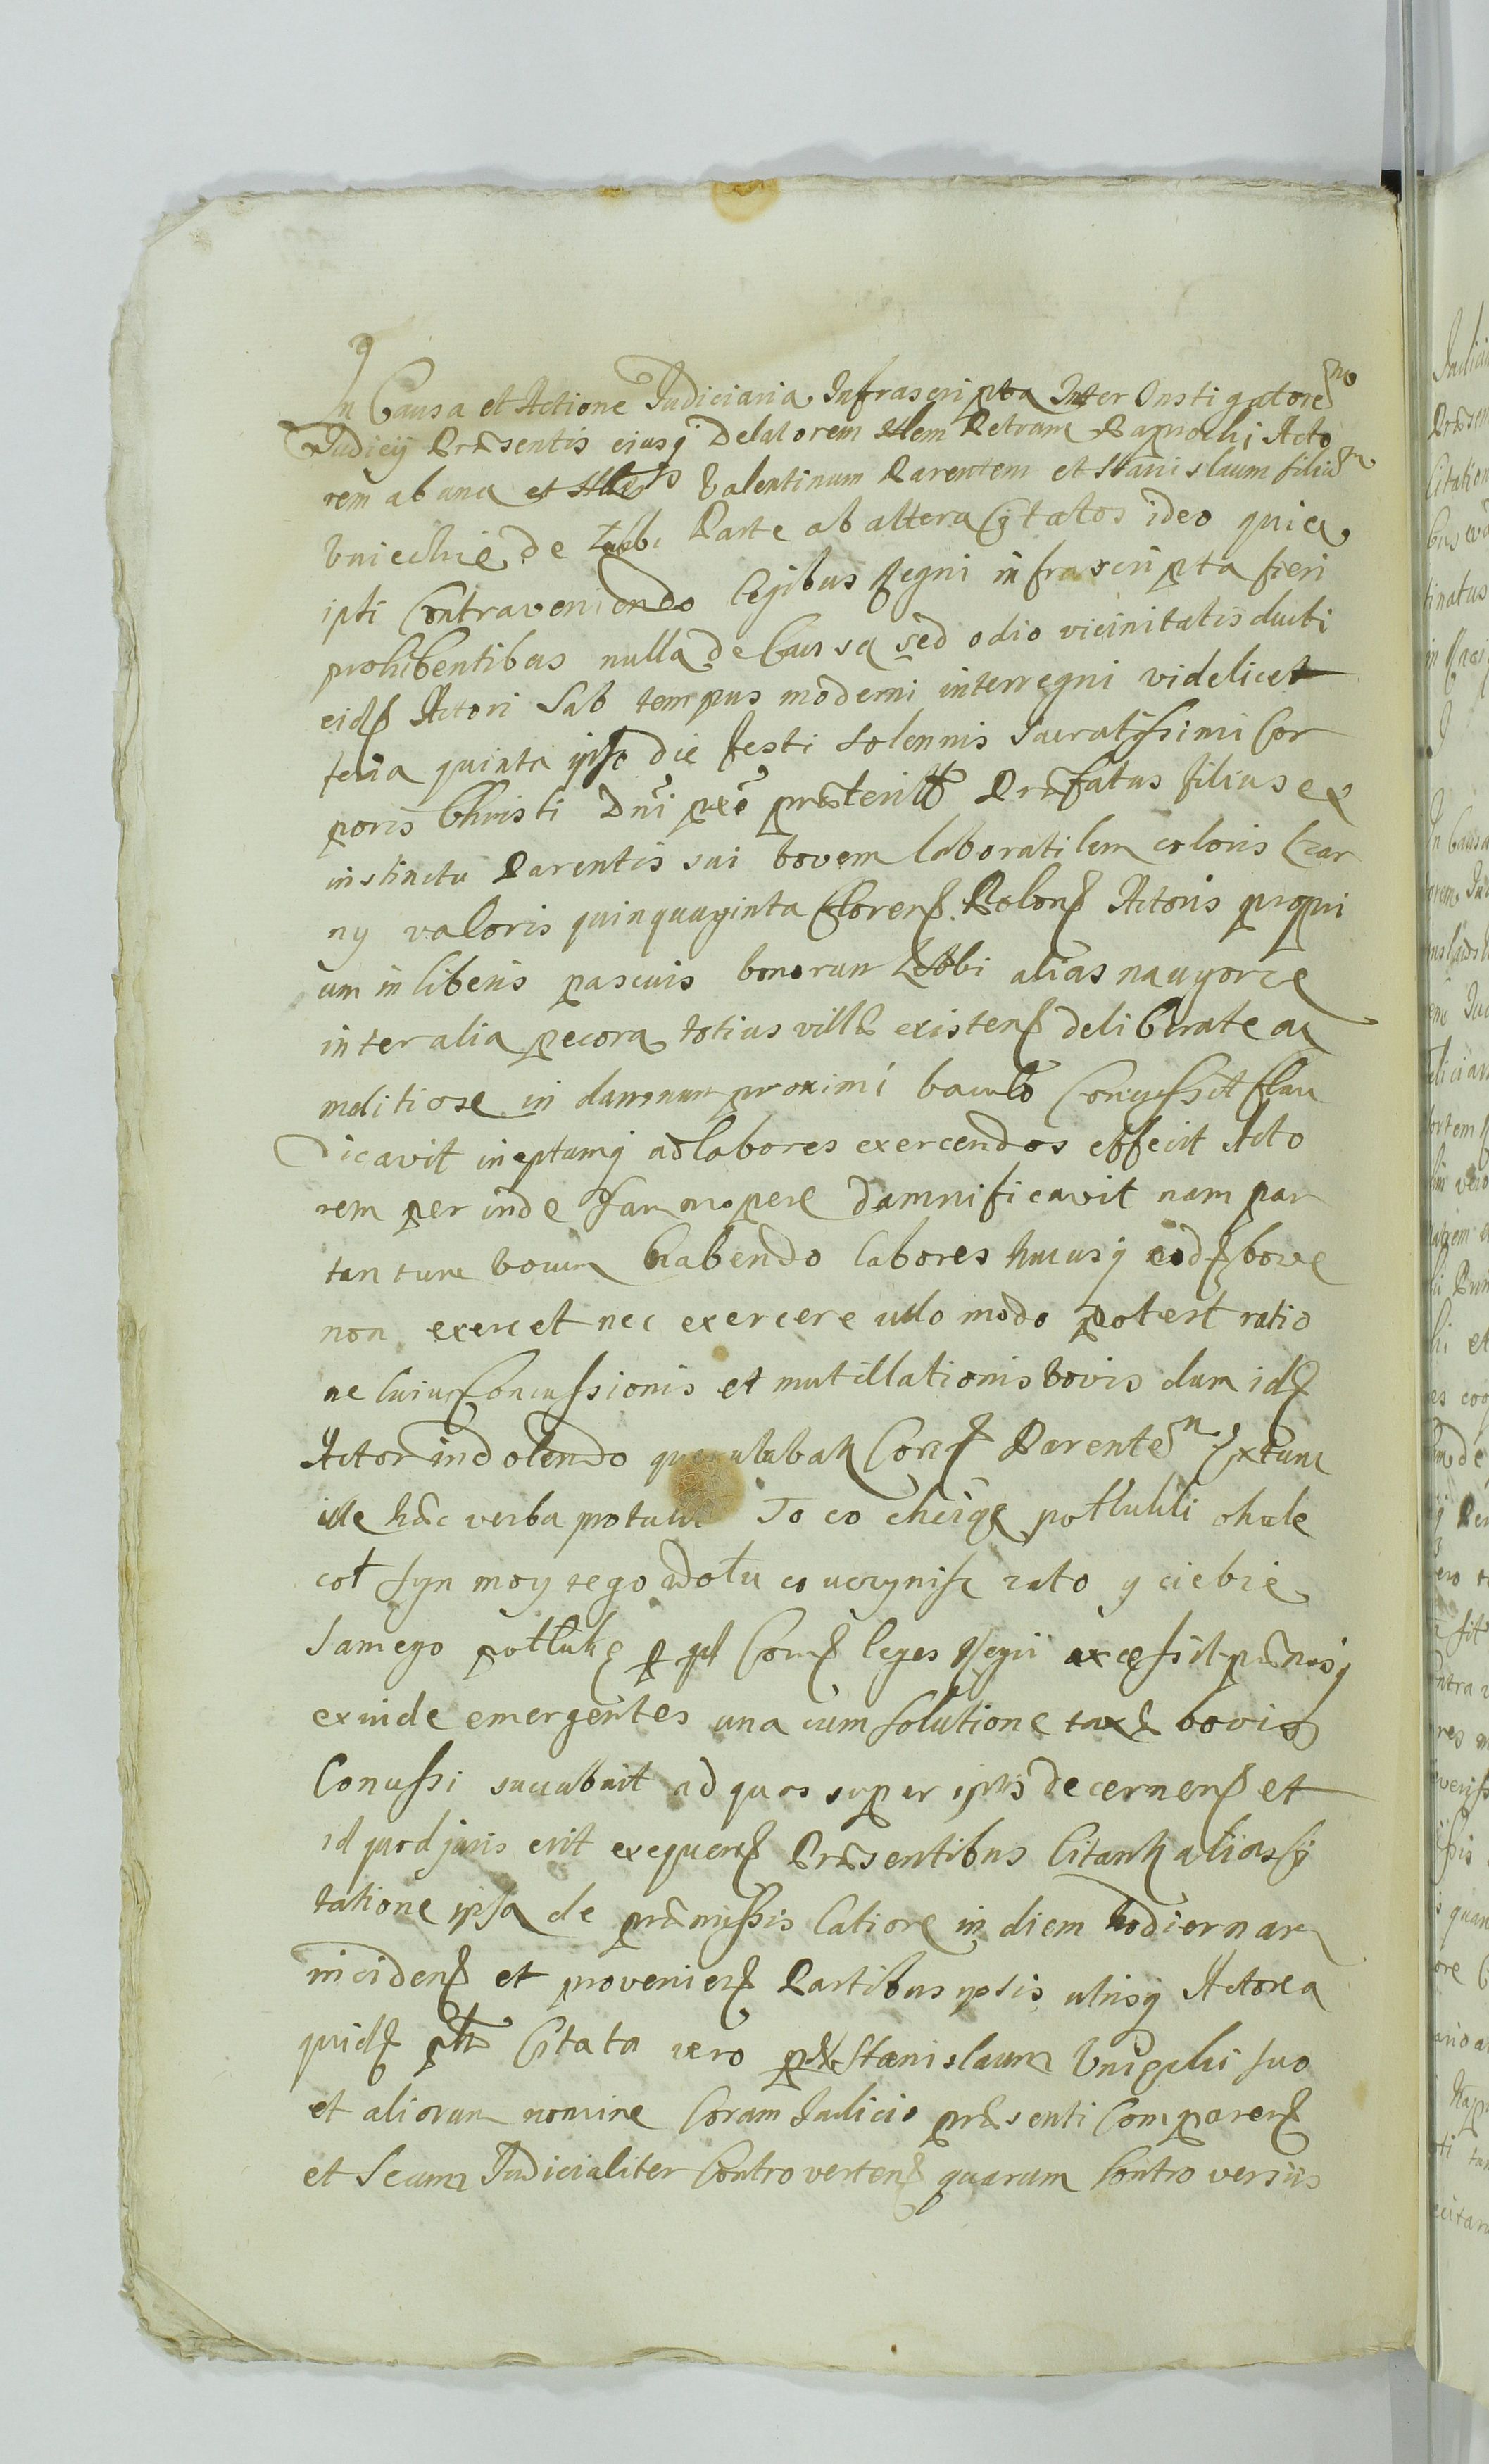 In Causa et Actione Judiciaria Infrascripta Inter Instigatorem
Judicij Præsentis eiusq Delatorem Nlem Petrum Acto
rem ab una et Nles Valentinum Parentem et Stanislaum filium
de Parte ab altera Citatos ideo quia
ipsi Contraveniendo legibus Regni infrascripta fieri
prohibentibus nulla de Caussa sed odio vicinitatis ducti
eid Actori Sub tempus moderni interregni videlicet
feria quinta ipso die festi solennis Sacratissimi Cor
poris Christi Dni pxe præterit Præfatus filius ex
instinctu Parentis sui bovem laboratilem coloris Czar
ny valoris quinquaginta floren Polon Actoris propri
um in liberis pascuis bonorum alias na ugorze
inter alia pecora totius villæ existen deliberate ac
malitiose in damnum proximi baculo Concussit clau
dicavit ineptumq ad labores exercendos effecit Acto
rem per inde damnificavit nam par
tantum boum habendo labores hucusq eod bove
non exercet nec exercere ullo modo potest ratio
ne huius Concussionis et mutillationis bovis dum id
Actor indolendo Parentem extunc
ille hæc verba protulit To co
syn moy tego wołu co uczynisz za to y ciebie
samego Con leges Regni excessit pænasq
exinde emergentes una cum solutione taxæ bovis
Concussi succubuit ad quas super ipsis decernen et
id quod juris erit exequen Præsentibus Citant alias Ci
tatione ipsa de præmissis latiore in diem hodiernam
inciden et provenien Partibus ipsis utrisq Actorea
quid Citata vero Stanislaum suo
et aliorum nomine Coram Judicio præsenti Comparen
et Secum Judicialiter Controverten quarum Controversiis